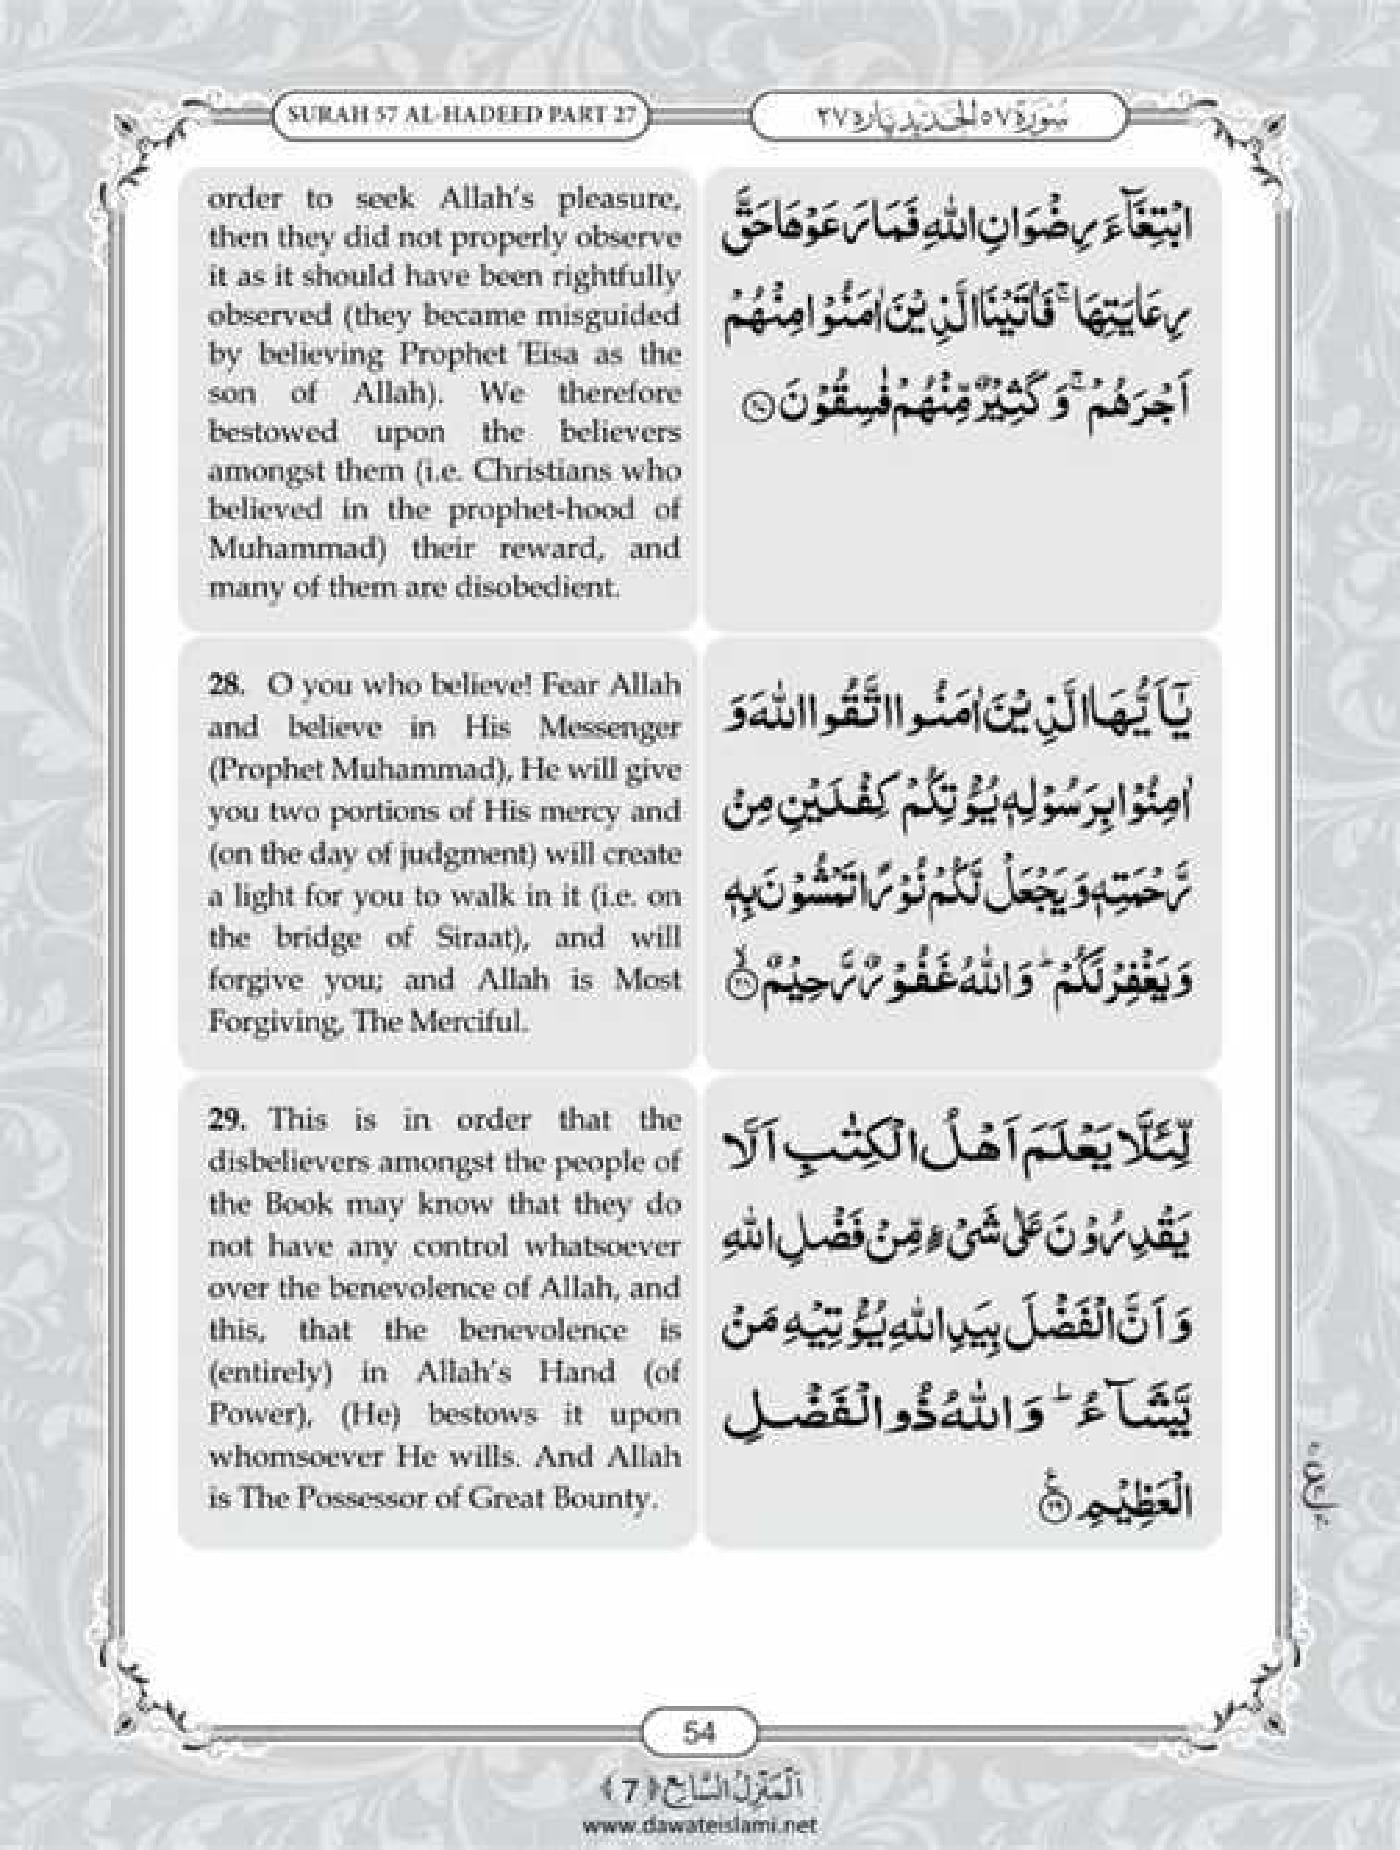 SURAH 57 AL-HADEED PART 27
سُوْرَةُ ٥٧ الْحَدِيْد پاره ٢٧
order to seek Allah's pleasure,
then they did not properly observe
it as it should have been rightfully
observed (they became misguided
by believing Prophet 'Eisa as the
son of Allah). We therefore
bestowed upon the believers
amongst them (i.e. Christians who
believed in the prophet-hood of
Muhammad) their reward, and
many of them are disobedient.
ابْتِغَآءَ رِضْوَانِ اللّٰهِ فَمَا رَعَوْهَا حَقَّ
رِعَايَتِهَا ۚ فَاٰتَيْنَا الَّذِيْنَ اٰمَنُوْا مِنْهُمْ
اَجْرَهُمْ ۚ وَ كَثِيْرٌ مِّنْهُمْ فٰسِقُوْنَ
28. O you who believe! Fear Allah
and believe in His Messenger
(Prophet Muhammad), He will give
you two portions of His mercy and
(on the day of judgment) will create
a light for you to walk in it (i.e. on
the bridge of Siraat), and will
forgive you; and Allah is Most
Forgiving, The Merciful.
يٰۤاَيُّهَا الَّذِيْنَ اٰمَنُوا اتَّقُوا اللّٰهَ وَ
اٰمِنُوْا بِرَسُوْلِهٖ يُؤْتِكُمْ كِفْلَيْنِ مِنْ
رَّحْمَتِهٖ وَ يَجْعَلْ لَّكُمْ نُوْرًا تَمْشُوْنَ بِهٖ
وَ يَغْفِرْ لَكُمْ ؕ وَ اللّٰهُ غَفُوْرٌ رَّحِيْمٌ ۙ﴿٢٨﴾
29. This is in order that the
disbelievers amongst the people of
the Book may know that they do
not have any control whatsoever
over the benevolence of Allah, and
this, that the benevolence is
(entirely) in Allah's Hand (of
Power), (He) bestows it upon
whomsoever He wills. And Allah
is The Possessor of Great Bounty.
لِّئَلَّا يَعْلَمَ اَهْلُ الْكِتٰبِ اَلَّا
يَقْدِرُوْنَ عَلٰى شَيْءٍ مِّنْ فَضْلِ اللّٰهِ
وَ اَنَّ الْفَضْلَ بِيَدِ اللّٰهِ يُؤْتِيْهِ مَنْ
يَّشَآءُ ؕ وَ اللّٰهُ ذُو الْفَضْلِ
الْعَظِيْمِ ﴿٢٩﴾
54
اَلْمَنْزِلُ السَّابِع ﴿7﴾
www.dawateislami.net